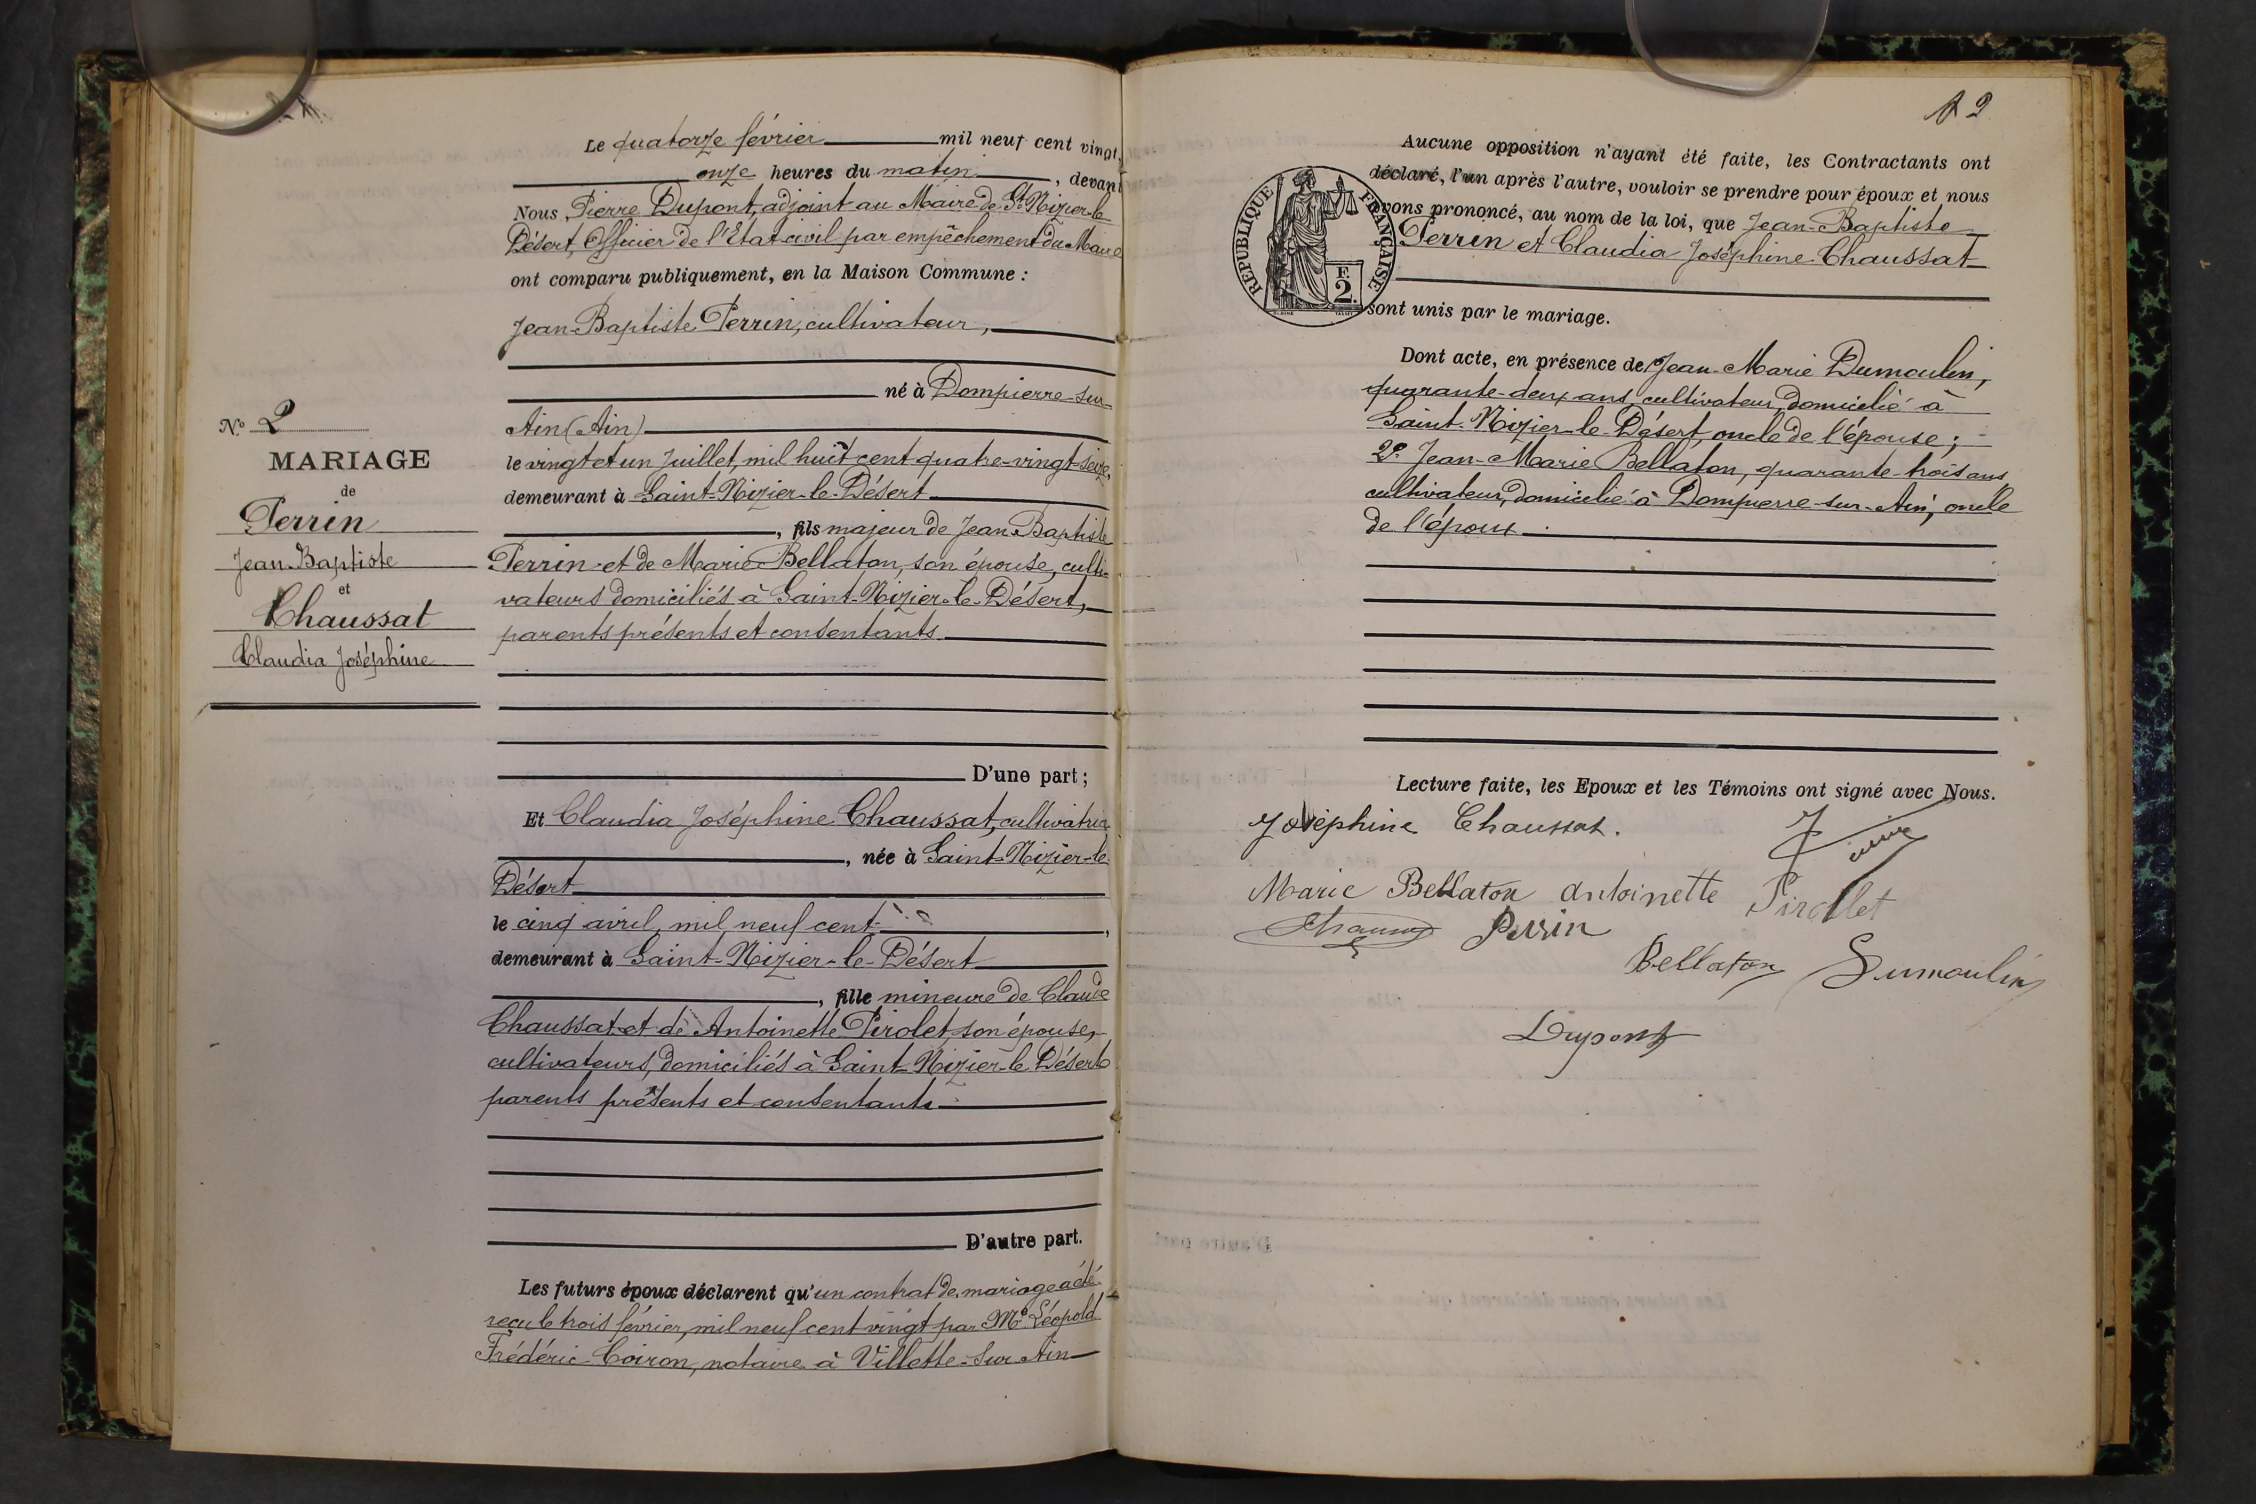 Le quatorze février mil neuf cent vingt,
onze heures du matin, devant
Nous Pierre Dupont, adjoint au Maire de St Nizier-le
Désert, Officier de l'Etat-civil par empêchement du Maire
ont comparu publiquement, en la Maison Commune :
Jean-Baptiste Perrin, cultivateur,
né à Dompierre-sur-
Ain (Ain)
le vingt et un Juillet, mil huit cent quatre-vingt-seize,
demeurant à Saint-Nizier-le-Désert
, fils majeur de Jean-Baptiste
Perrin et de Marie Bellaton, son épouse, culti-
vateurs domiciliés à Saint-Nizier-le-Désert,
parents présents et consentants
D'une part ;
Et Claudia Joséphine Chaussat, cultivatrice
, née à Saint-Nizier-le
Désert
le cinq avril, mil neuf cent
demeurant à Saint-Nizier-le-Désert
, fille mineure de Claude
Chaussat et de Antoinette Pirolet, son épouse,
cultivateurs, domiciliés à Saint-Nizier-le Désert
parents présents et consentants
D'autre part.
Les futurs époux déclarent qu'un contrat de mariage a été
reçu le trois février, mil neuf cent vingt par Me Léopold
Frédéric Coiron, notaire à Villette-sur Ain
No 2
MARIAGE
de
Perrin
Jean-Baptiste
et
Chaussat
Claudia Joséphine
Aucune opposition n'ayant été faite, les Contractants ont
déclaré, l'un après l'autre, vouloir se prendre pour époux et nous
avons prononcé, au nom de la loi, que Jean-Baptiste
Perrin et Claudia Joséphine Chaussat
sont unis par le mariage.
REPUBLIQUE FRANÇAISE
F.
2.
Dont acte, en présence de Jean-Marie Dumoulin,
quarante-deux ans, cultivateur, domicilié à
Saint-Nizier-le-Désert, oncle de l'épouse ;
2º Jean-Marie Bellaton, quarante-trois ans
cultivateur, domicilié à Dompierre-sur-Ain, oncle
de l'époux.
Lecture faite, les Epoux et les Témoins ont signé avec Nous.
Joséphine Chaussat.
Marie Bellaton Antoinette Pirollet
Perrin
Bellaton Dumoulin
Dupont